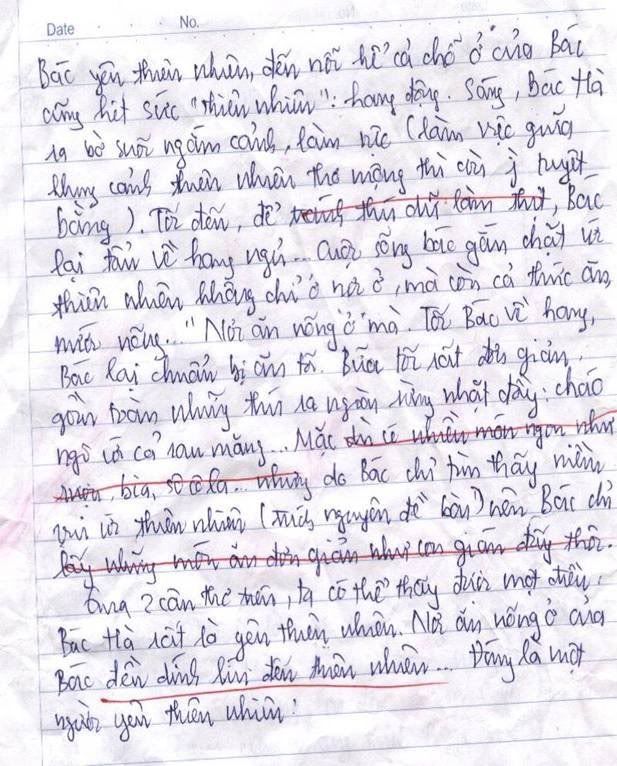 Date No.
Bác yêu thiên nhiên, đến nỗi hể cả chỗ ở của Bác
cũng hết sức "thiên nhiên": hang động. Sáng, Bác Hồ
ra bờ suối ngắm cảnh, làm việc (làm việc giữa
khung cảnh thiên nhiên thơ mộng thì còn j tuyệt
bằng). Tối đến, để tránh thú dữ làm thịt, Bác
lại tẩu về hang ngủ... Cuộc sống bác gắn chặt vs
thiên nhiên không chỉ ở nơi ở, mà còn cả thức ăn,
nước nống... "Nơi ăn nống ở" mà. Tối Bác về hang,
Bác lại chuẩn bị ăn tối. Bữa tối rất đơn giản,
gồm toàn những thứ ra ngoài rừng nhặt đầy: cháo
ngô và cả rau măng... Mặc dù có nhiều món ngon như
rượu, bia, sôcôla... nhưng do Bác chỉ tìm thấy niềm
vui từ thiên nhiên (trích nguyên đề bài) nên Bác chỉ
lấy những món ăn đơn giản như con gián đấy thôi.
Qua 2 câu thơ trên, ta có thể thấy được một điều:
Bác Hồ rất là yêu thiên nhiên. Nơi ăn nống ở của
Bác đền dính líu đến thiên nhiên... Đúng là một
người yêu thiên nhiên!